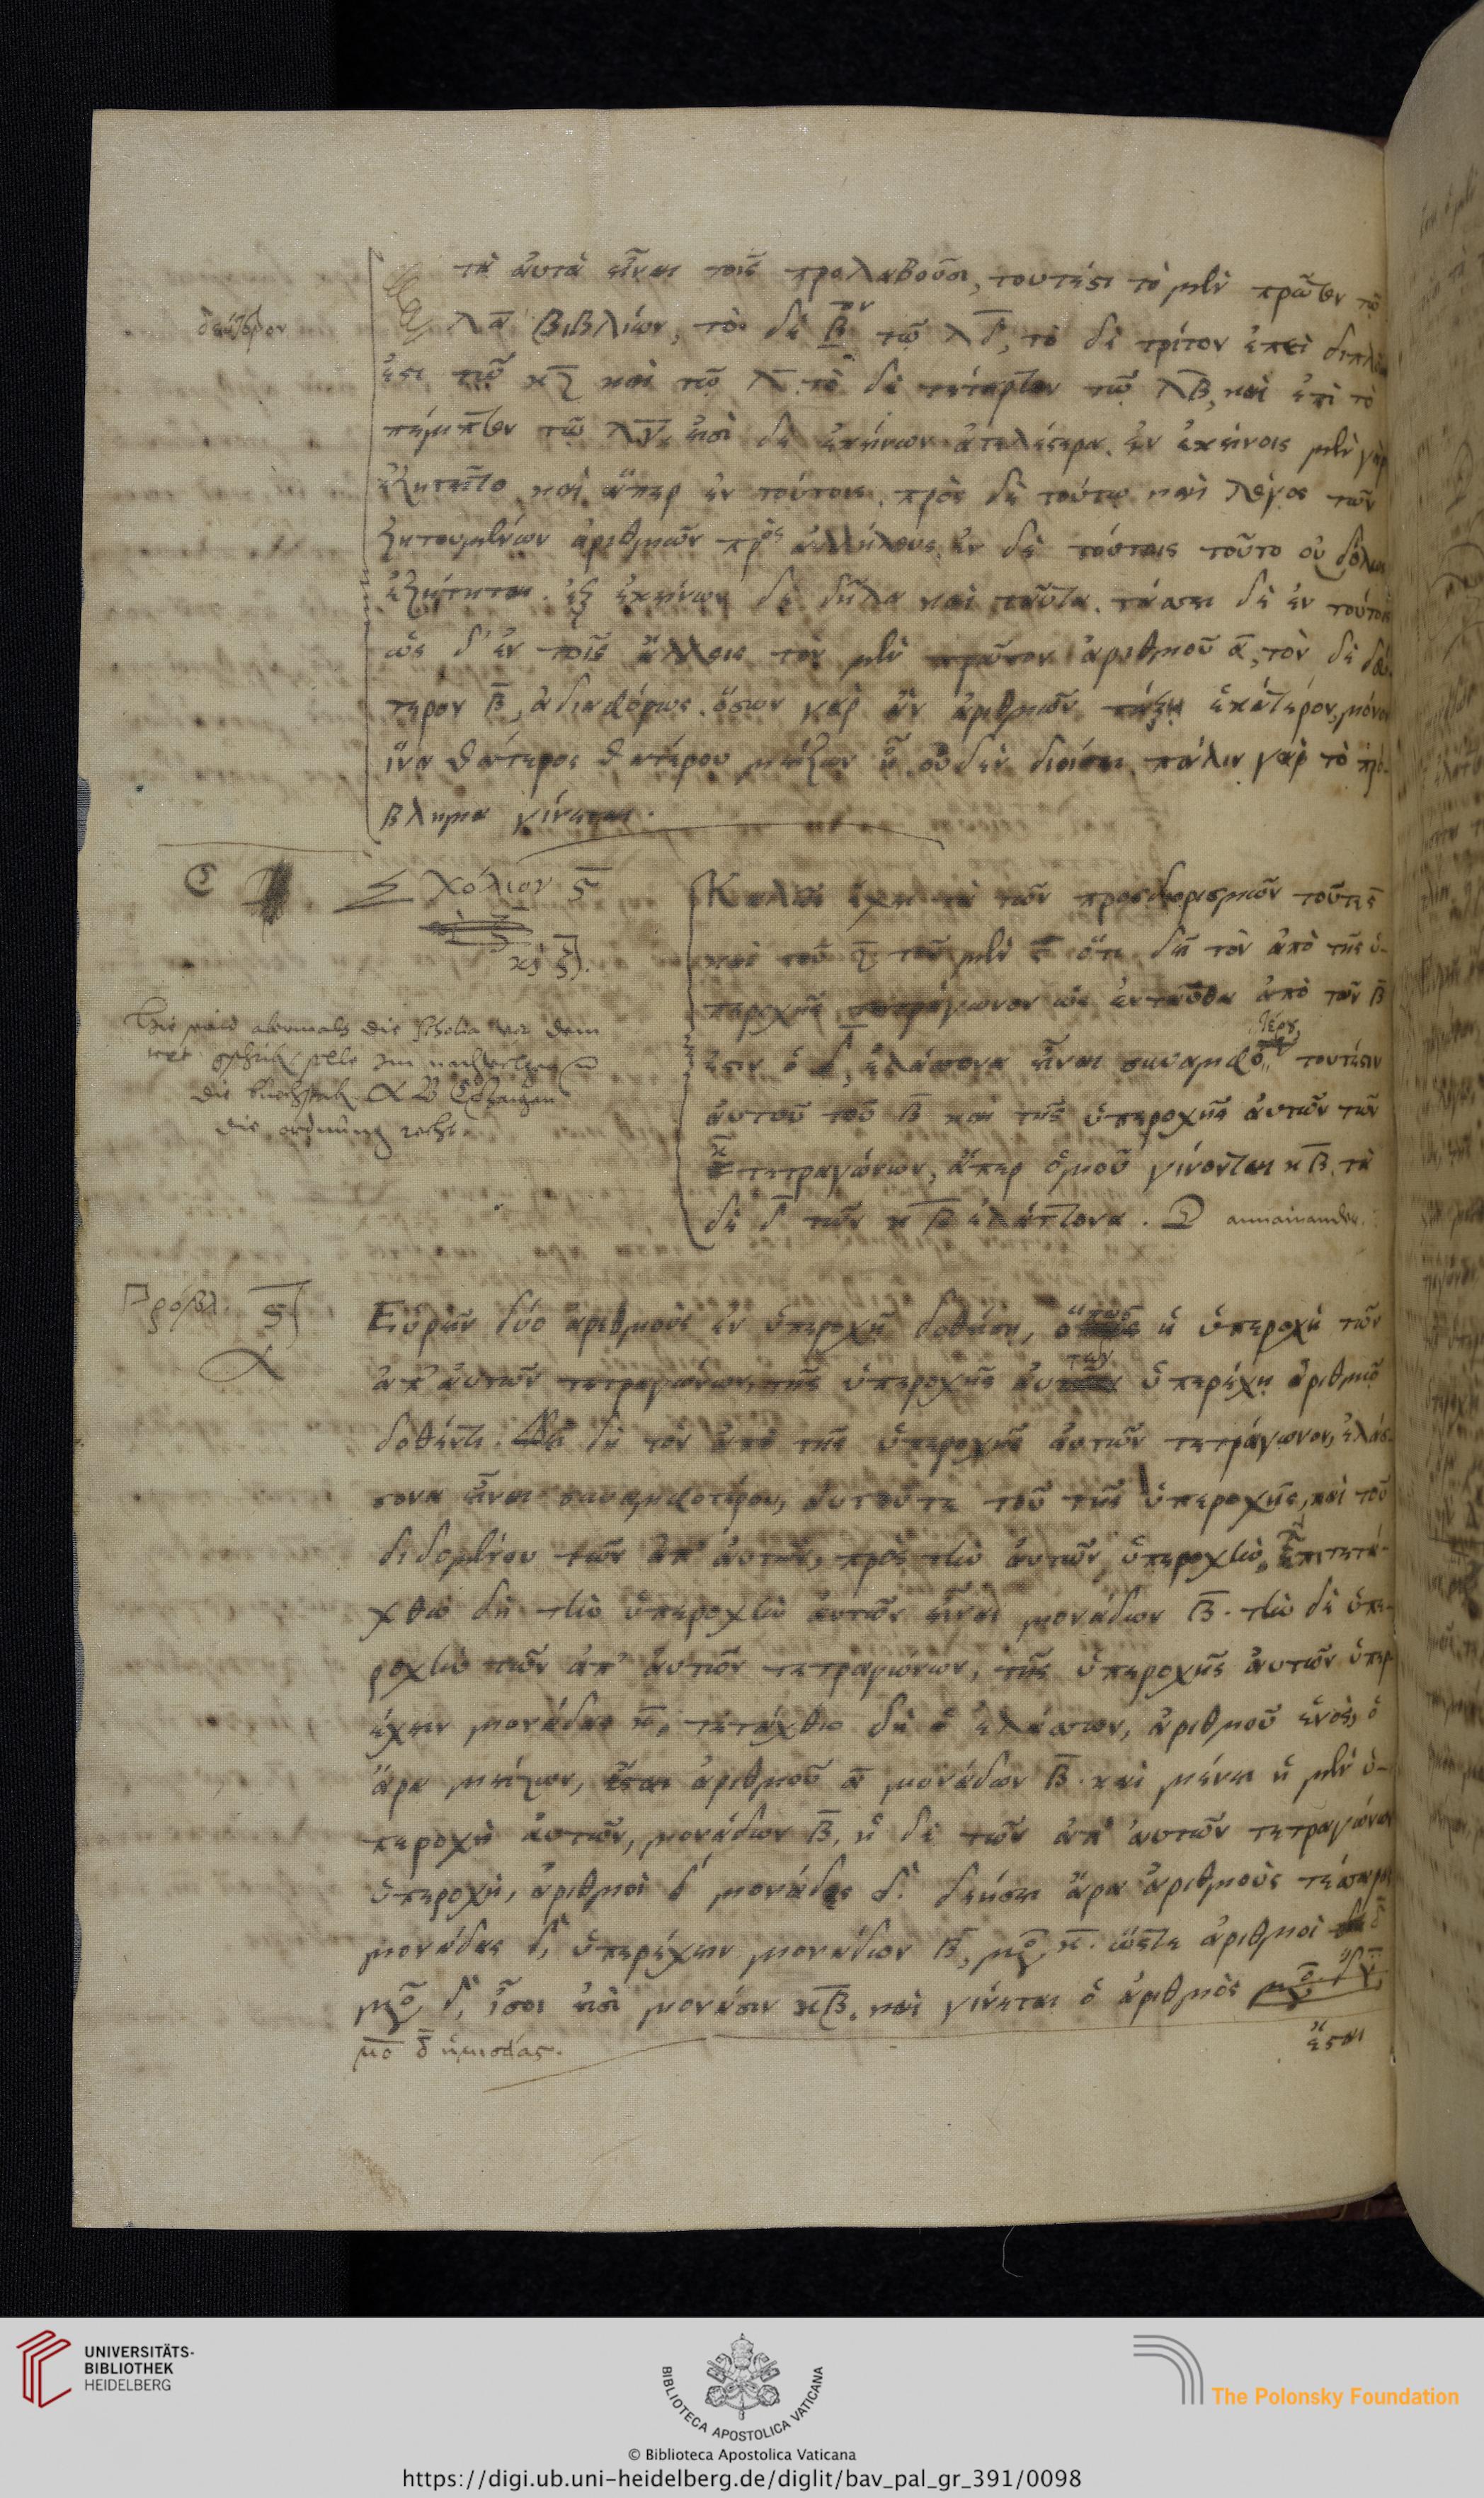 τὰ ἀυτὰ εἶναι τοῖς προλαβοῦσι, τουτέστι τὸ μὲν πρῶτον τῷ
δεύτερον
λα̅ βιβλίων, τὸ δὲ β̅ον τῷ λδ̅, τὸ δὲ τρίτον ἐπεὶ
ἐστι τῷ κζ̅ καὶ τῷ λ̅. τὸ δὲ τέταρτον τῷ λβ̅, καὶ ἐπὶ τὸ
πέμπτον τῷ λγ̅. εἰσὶ δὲ ἐκείνων ἀτελέστερα. ἐν ἐκείνοις μὲν γὰρ
ἐζητεῖτο καὶ ἅπερ ἐν τούτοις. πρὸς δὲ τούτω καὶ λόγος τῶν
ζητουμένων ἀριθμῶν πρὸς ἀλλήλους. ἐν δὲ τούτοις τοῦτο οὐ
ἐζήτηται. ἐξ ἐκείνων δὲ δῆλα καὶ ταῦτα. τάσσει δὲ ἐν τούτοις
ὡς δ' ἐν τοῖς ἄλλοις τὸν μὲν πρῶτον ἀριθμοῦ α̅, τὸν δὲ δεύ-
τερον β̅, ἀδιαφόρως. ὅσων γὰρ ἂν ἀριθμῶν τάξῃ ἑκάτερον, μόνον
ἵνα θάτερος θατέρου μείζων ᾖ οὐδὲν διοίσει. πάλιν γὰρ τὸ πρό-
βλημα γίνεται.
C
Σχόλιον ϛ̅
κ̀ ζ̅.
Καλῶς ἔχει τὰ τῶν προσδιορισμῶν τοῦτε ϛ̅
καὶ τοῦ ζ̅ τοῦ μὲν ϛ̅ ὅτι δεῖ τὸν ἀπὸ τῆς ὑ-
περοχῆς τετράγωνον ὡς ἐνταῦθα ἀπὸ τῶν β̅
ἐστιν ὁ δ̅, ἐλάσσονα εἶναι συναμφοτέρου, τουτέστιν
ἀυτοῦ τοῦ β̅ καὶ τῆς ὑπεροχῆς ἀυτῶν τῶν
κ̅ τετραγώνων, ἅπερ ὁμοῦ γίνονται κβ̅. τὰ
δὲ δ̅ τῶν κβ̅ ἐλάττονα.
Hie seind abermals die scholia vor dem
text
die buechstab α B C D zaigen
die ordnung recht.
Πρόβλ. ϛ̅
α
Εὑρεῖν δύο ἀριθμοὺς ἐν ὑπεροχῇ δοθείσῃ, ὅπως ἡ ὑπεροχὴ τῶν
ἀπ' ἀυτῶν τετραγώνων, τῆς ὑπεροχῆς ἀυτῶν ὑπερέχῃ ἀριθμῷ
δοθέντι. δεῖ δὴ τὸν ἀπὸ τῆς ὑπεροχῆς ἀυτῶν τετράγωνον, ἐλάσ-
σονα εἶναι συναμφοτέρου, ἀυτοῦτε τοῦ τῆς ὑπεροχῆς, καὶ τοῦ
διδομένου τῶν ἀπ' ἀυτῶν, πρὸς τὴν ἀυτῶν ὑπεροχὴν. Ἐπιτετά-
χθω δὴ τὴν ὑπεροχὴν ἀυτῶν εἶναι μονάδων β̅. τὴν δὲ ὑπε-
ροχὴν τῶν ἀπ' ἀυτῶν τετραγώνων, τῆς ὑπεροχῆς ἀυτῶν ὑπερ-
έχειν μονάδας κ̅. τετάχθω δὴ ὁ ἐλάσσων, ἀριθμοῦ ἑνὸς, ὁ
ἄρα μείζων, ἔσται ἀριθμοῦ α̅ μονάδων β̅. καὶ μένει ἡ μὲν ὑ-
περοχὴ ἀυτῶν, μονάδων β̅, ἡ δὲ τῶν ἀπ' ἀυτῶν τετραγώνων
ὑπεροχὴ, ἀριθμοὶ δ̅ μονάδες δ̅. δεήσει ἄρα ἀριθμοὺς τέσσαρας
μονάδας δ̅, ὑπερέχειν μονάδων β̅, μο̅ κ̅. ὥστε ἀριθμοὶ δ̅
μο̅ δ̅, ἴσοι εἰσὶ μονάσιν κβ̅. καὶ γίνεται ὁ ἀριθμὸς
μο̅ δ̅ ἡμισείας.
ἔσται
UNIVERSITÄTS-
BIBLIOTHEK
HEIDELBERG
BIBLIOTECA APOSTOLICA VATICANA
The Polonsky Foundation
© Biblioteca Apostolica Vaticana
https://digi.ub.uni-heidelberg.de/diglit/bav_pal_gr_391/0098